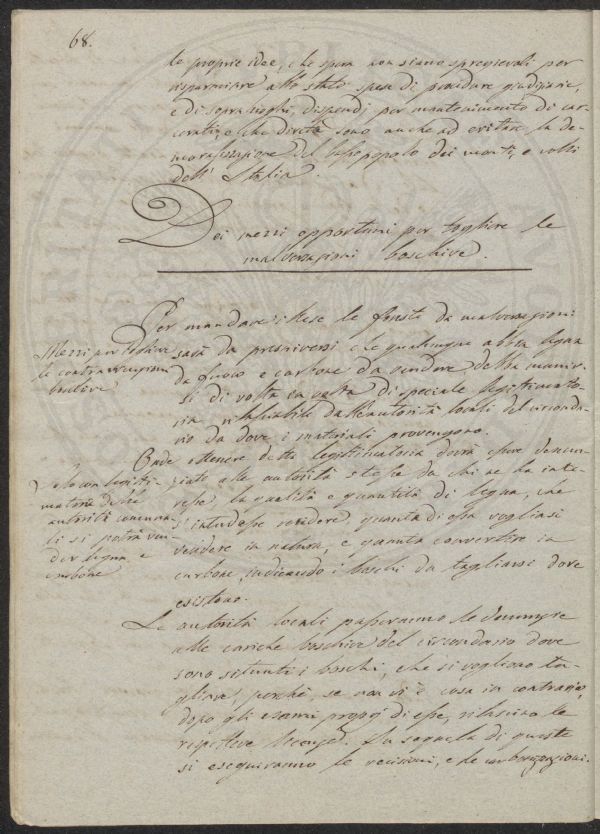 68.
le proprie idee, che spera non siano spregievoli per
risparmiare allo stato spese di procedure giudiziarie,
e di sopraluoghi, dispendj per mantenimento di car-
cerati, e che dirette sono anche ad evitare la de-
moralizzazione del basso popolo dei monti, e colli
dell' Italia.
Dei mezzi opportuni per togliere le
malversazioni boschive.
Mezzi per togliere
le contravvenzioni
boschive
Per mandare illese le foreste da malversazioni
sarà da prescriversi che qualunque abbia legna
da fuoco e carbone da vendere debba munir-
si di volta in volta di speciale legittimato-
ria rilasciabile dalle autorità locali del circonda-
rio da dove i materiali provengono.
Solo con legitti-
matoria delle
autorità comuna-
li si potrà ven-
der legna e
carbone
Onde ottenere detta legittimatoria dovrà essere denun-
ziato alle autorità stesse da chi ne ha inte-
resse la qualità e quantità di legna, che
s'intendesse vendere, quanta di essa vogliasi
vendere in natura, e quanta convertire in
carbone, indicando i boschi da tagliarsi dove
esistono.
Le autorità locali passeranno le denunzie
alle cariche boschive del circondario dove
sono situati i boschi, che si vogliono ta-
gliare, perchè, se non vi è cosa in contrario,
dopo gli esami proprj di esse, rilascino le
rispettive licenze. In seguela di queste
si eseguiranno le recisioni, e le carbonizzazioni.